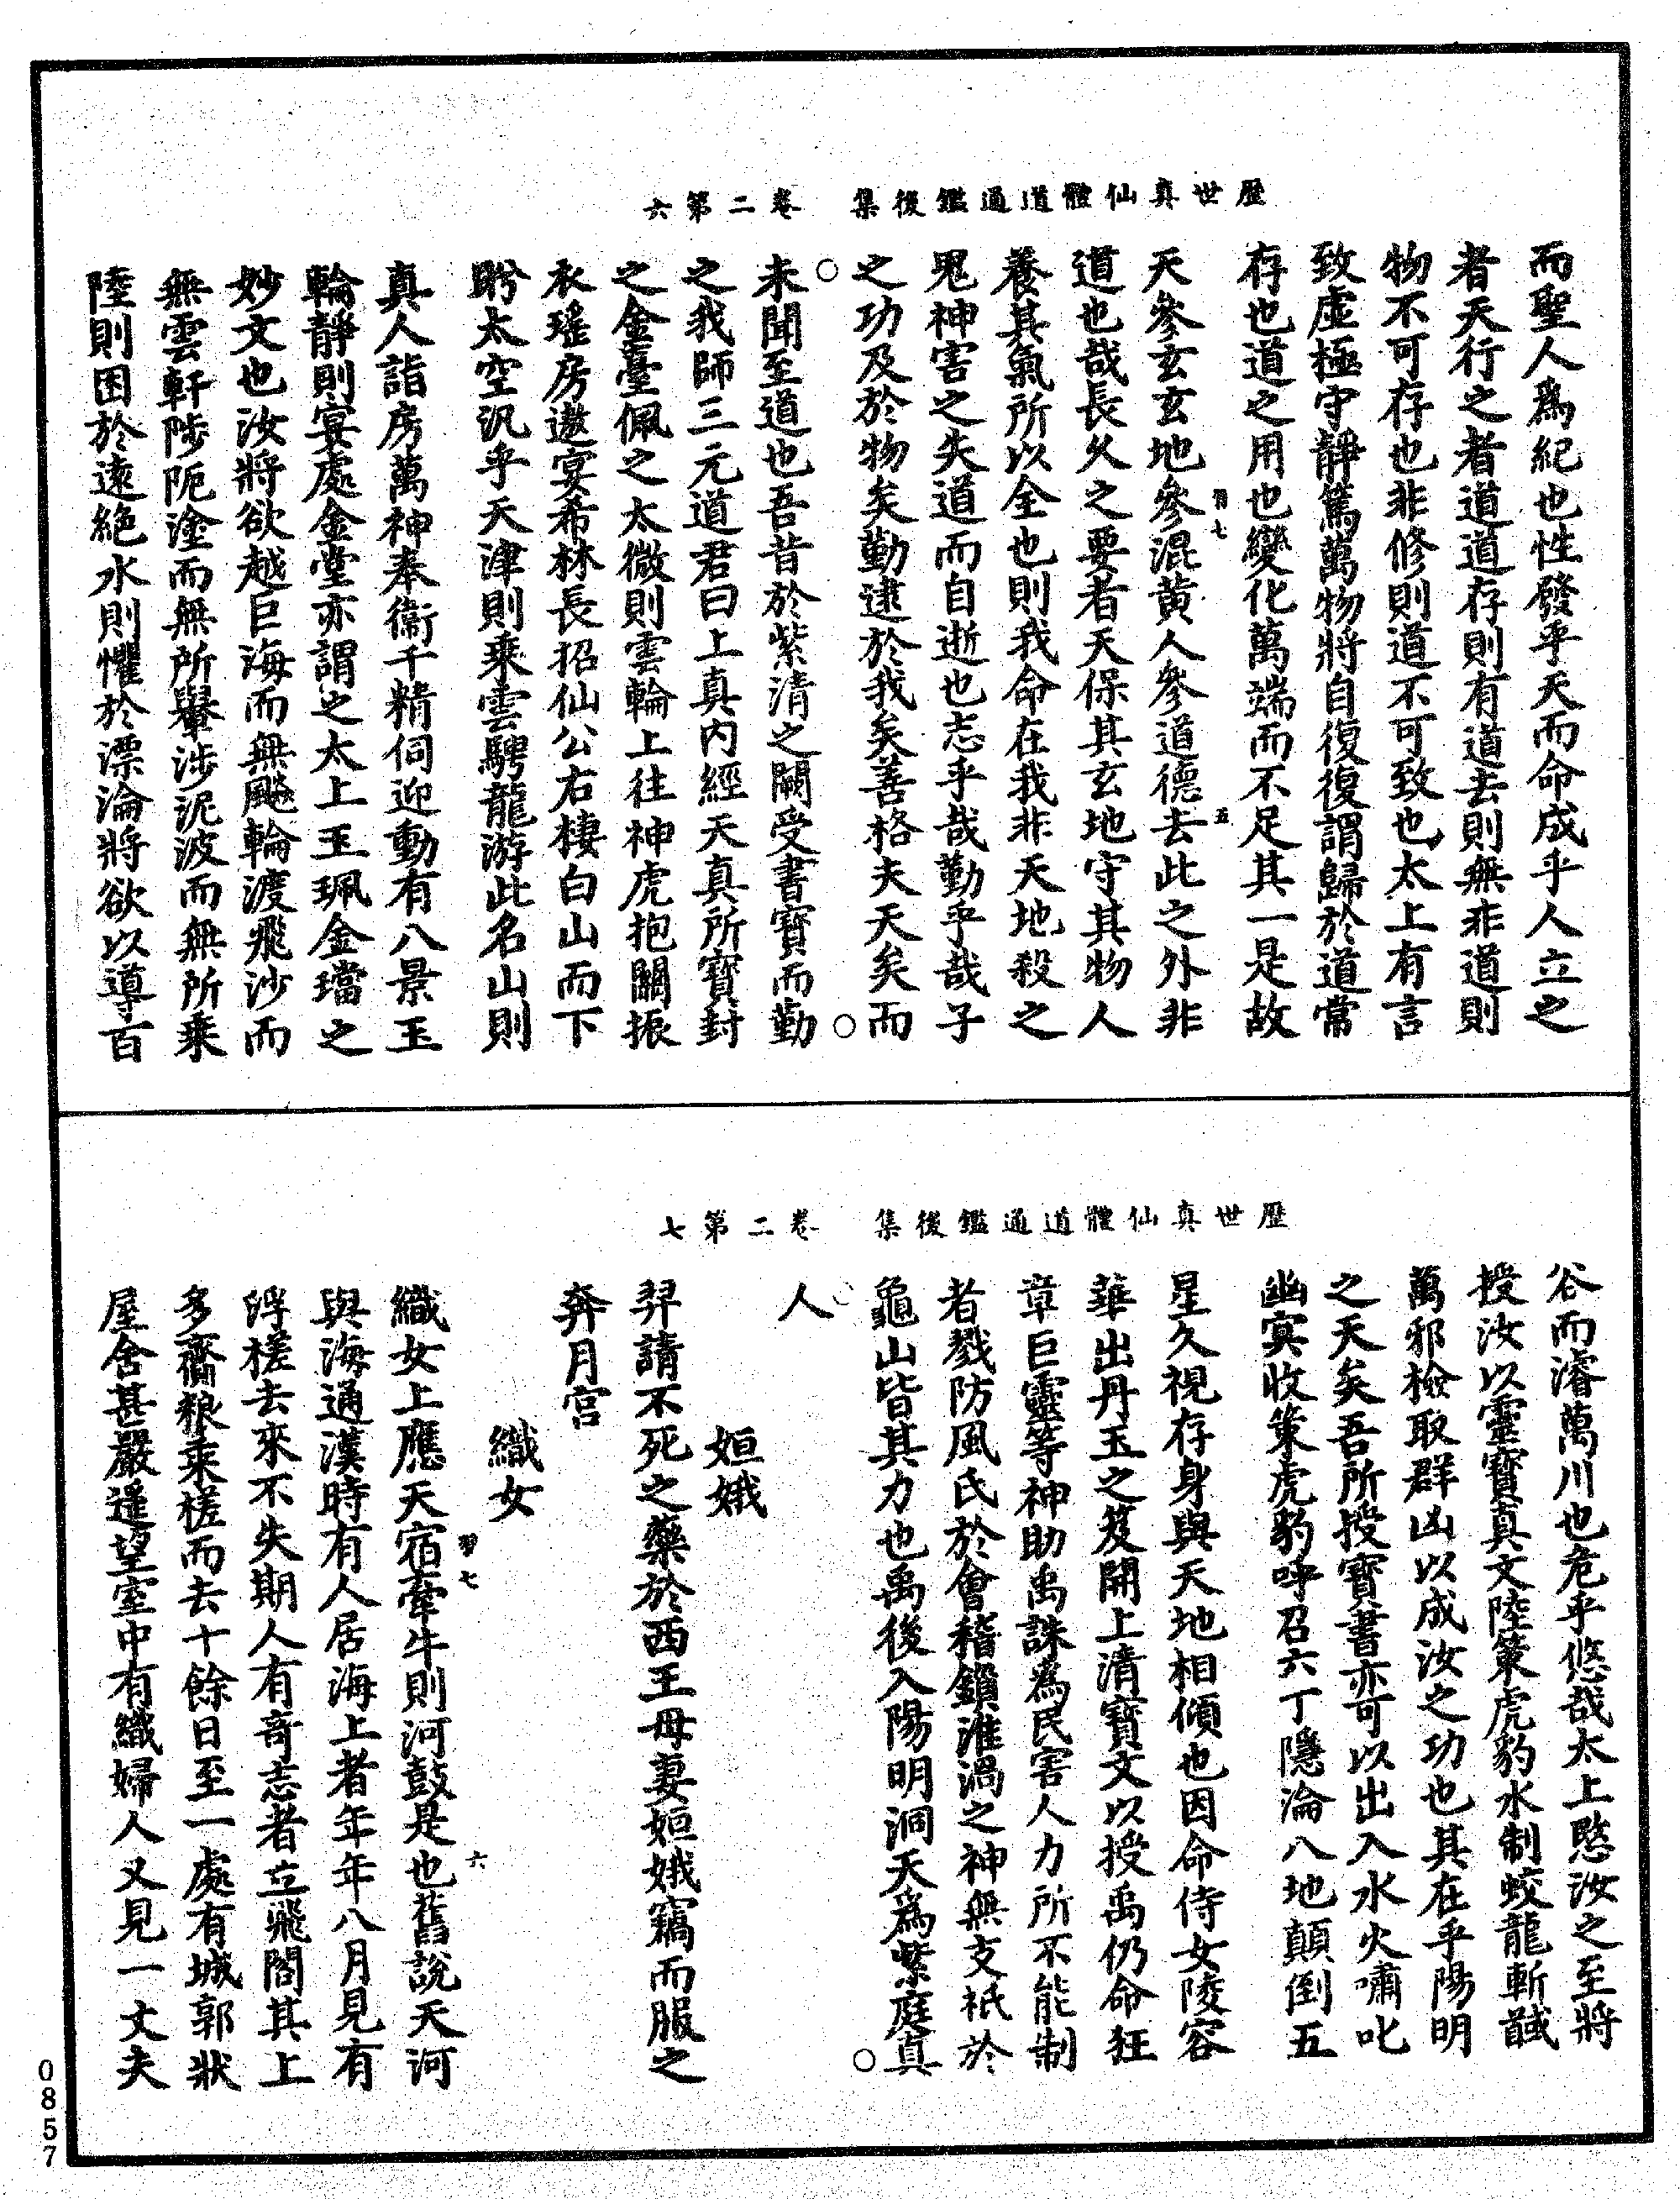 歷世真仙體道通鑑後集　卷二第六
而聖人爲紀也性發乎天而命成乎人立之
者天行之者道道存則有道去則無非道則
物不可存也非修則道不可致也太上有言
致虛極守靜篤萬物將自復復謂歸於道常
存也道之用也變化萬端而不足其一是故
天參玄玄地參混黄人參道德去此之外非
羽七
五
道也哉長久之要者天保其玄地守其物人
養其氣所以全也則我命在我非天地殺之
鬼神害之失道而自逝也志乎哉勤乎哉子
之功及於物矣勤逮於我矣善格夫天矣而
未聞至道也吾昔於紫清之闕受書寶而勤
之我師三元道君曰上真內經天真所寶封
之金臺佩之太微則雲輪上往神虎抱關振
衣瑤房遨宴希林長招仙公右棲白山而下
眄太空汎乎天津則乘雲騁龍游此名山則
真人詣房萬神奉衞千精伺迎動有八景玉
輪靜則宴處金堂亦謂之太上玉珮金璫之
妙文也汝將欲越巨海而無飈輪渡飛沙而
無雲軒陟阨塗而無所轝涉泥波而無所乘
陸則困於遠絶水則懼於漂淪將欲以導百
歷世真仙體道通鑑後集　卷二第七
谷而濬萬川也危乎悠哉太上愍汝之至將
授汝以靈寶真文陸策虎豹水制蛟龍斬馘
萬邪檢取群凶以成汝之功也其在乎陽明
之天矣吾所授寶書亦可以出入水火嘯叱
幽冥收策虎豹呼召六丁隱淪八地顛倒五
星久視存身與天地相傾也因命侍女陵容
華出丹玉之笈開上清寶文以授禹仍命狂
章巨靈等神助禹誅爲民害人力所不能制
者戮防風氏於會稽鎖淮渦之神無支祇於
龜山皆其力也禹後入陽明洞天爲紫庭真
人
姮娥
羿請不死之藥於西王母妻姮娥竊而服之
奔月宮
織女
織女上應天宿牽牛則河鼓是也舊說天河
習七
六
與海通漢時有人居海上者年年八月見有
浮槎去來不失期人有奇志者立飛閣其上
多齎粮乘槎而去十餘日至一處有城郭狀
屋舍甚嚴遥望室中有織婦人又見一丈夫
0857